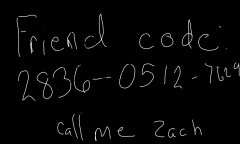 Friend code:
2836--0512-7629
call me Zach